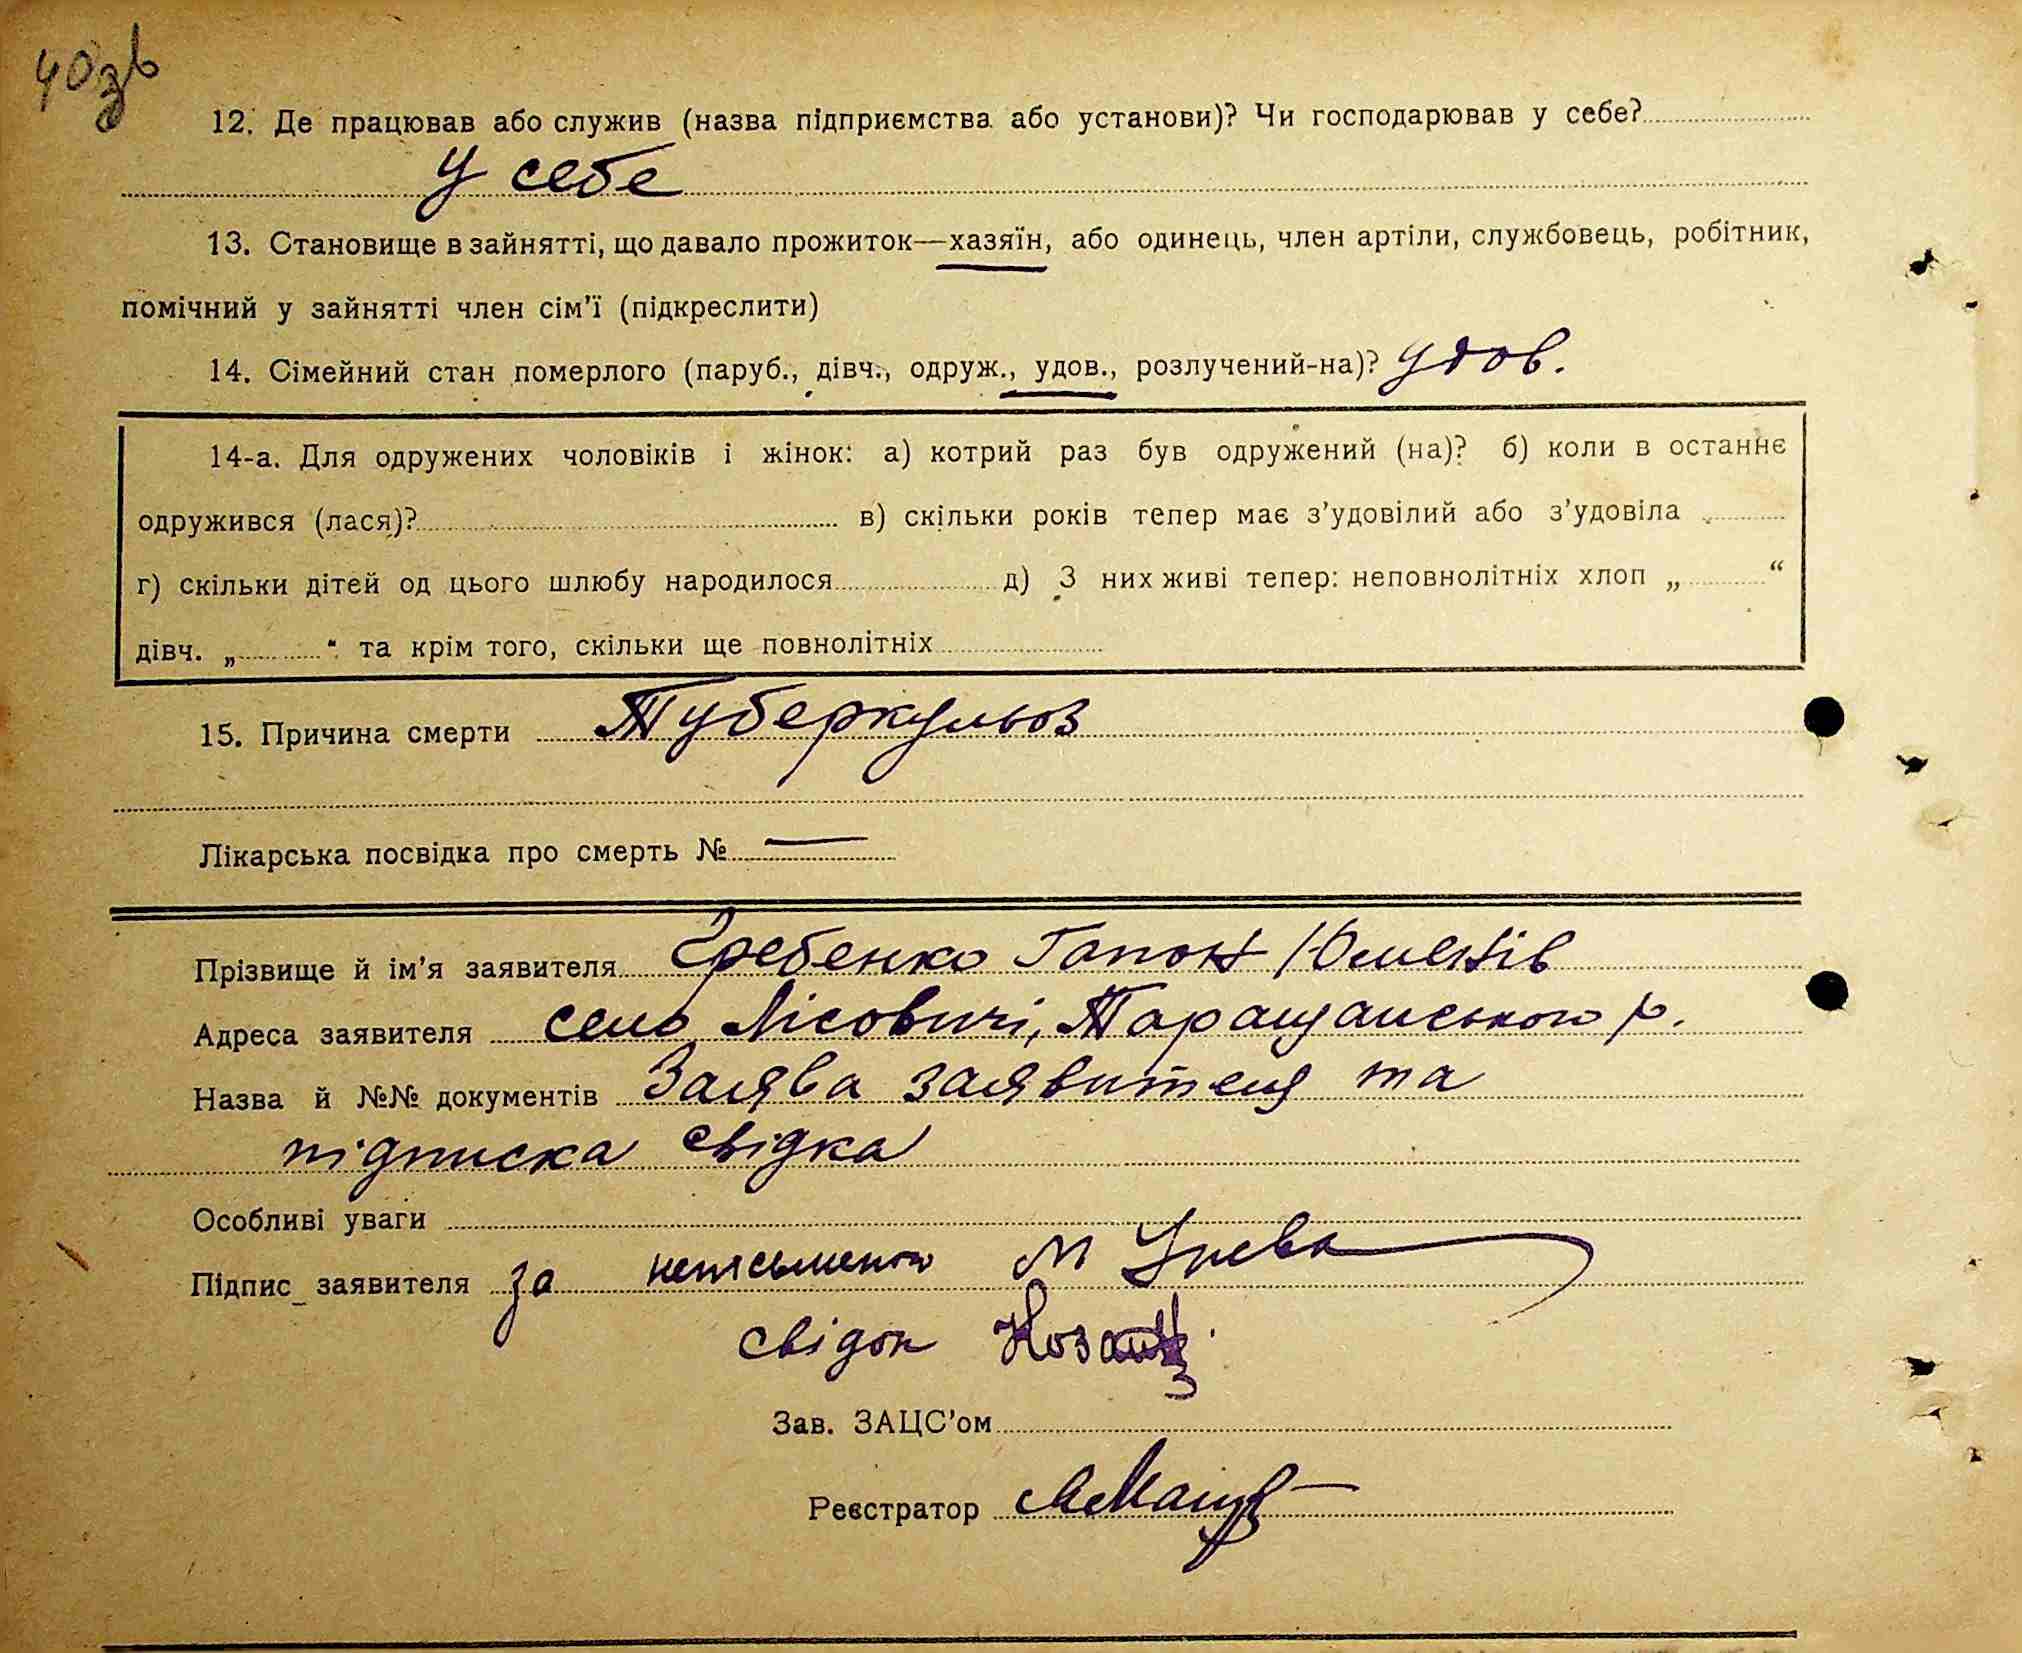 40зв
12. Де працював або служив (назва підприємства або установи)? Чи господарював у себе?
У себе
13. Становище в зайнятті, що давало прожиток—хазяїн, або одинець, член артіли, службовець, робітник,
помічний у зайнятті член сім'ї (підкреслити)
14. Сімейний стан померлого (паруб., дівч., одруж., удов., розлучений-на)? удов.
14-а. Для одружених чоловіків і жінок: а) котрий раз був одружений (на)? б) коли в останнє
одружився (лася)? в) скільки років тепер має з'удовілий або з'удовіла
г) скільки дітей од цього шлюбу народилося д) З них живі тепер: неповнолітніх хлоп „ “
дівч. „ “ та крім того, скільки ще повнолітніх
15. Причина смерти Туберкульоз
Лікарська посвідка про смерть № —
Прізвище й ім'я заявителя Гребенко Гапон
Адреса заявителя село Лісовичі, Таращанського р.
Назва й №№ документів Заява заявителя та
підписка свідка
Особливі уваги
Підпис заявителя за неписьменого М
свідок
Зав. ЗАЦС'ом
Реєстратор